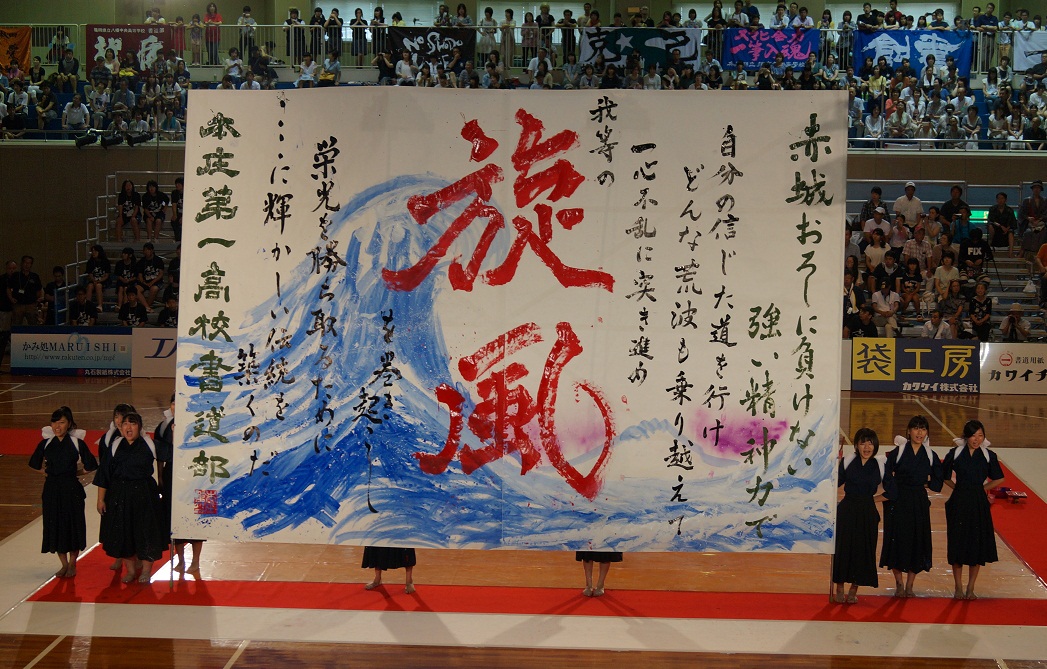 赤城おろしに負けない
強い精神力で
自分の信じた道を行け
どんな荒波も乗り越えて
一心不乱に突き進め
我等の
旋風
を巻き起こし
栄光を勝ち取るために
ここに輝かしい伝統を
築くのだ
本庄第一高校書道部
No Shodo
一筆入魂
かみ処 MARUISHI
http://www.rakuten.co.jp/mpl
丸石製紙株式会社
袋工房
カタケイ株式会社
書道用紙
カワイチ